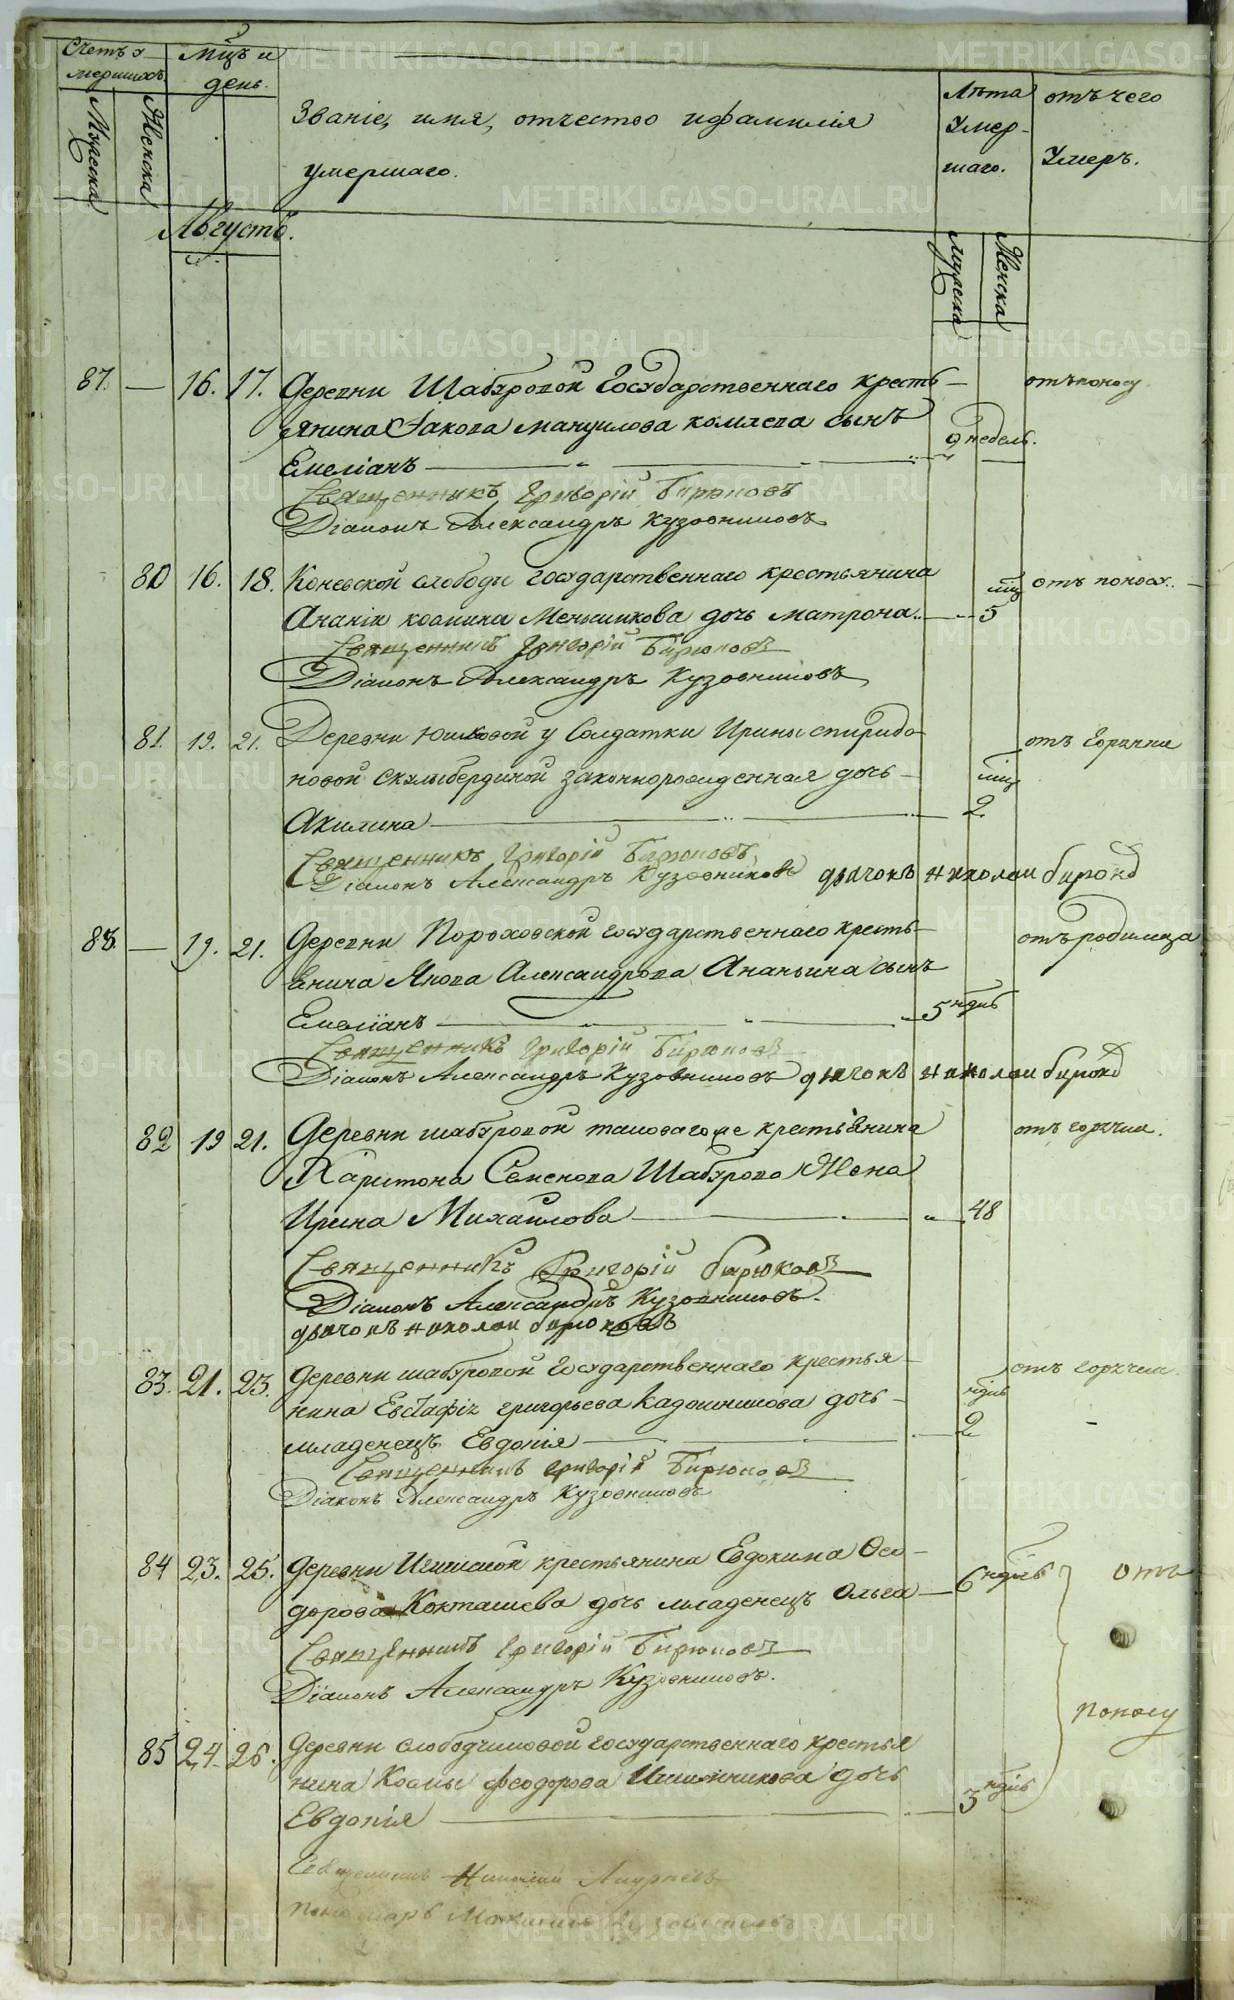 Счетъ у
мершихъ.
Мужеска
Женска
Мцъ и
день.
Званіе, имя, отчество и фамилія
умершаго.
Лѣта
Умер-
шаго.
Мужеска
Женска
отъ чего
Умеръ.
Августъ.
87. — 16. 17. Деревни Шабуровой Государственнаго кресть-
янина Іакова Мануилова Комлева сынъ
Емеліанъ — 9 недель. отъ поносу
Священникъ Григорій Бирюковъ
Діаконъ Александръ Кузовниковъ
80 16. 18. Коневской слободы государственнаго крестьянина
Ананіи Козмина Меньшикова дочь Матрона. — мцъ 5 отъ поносу.
Священникъ Григорій Бирюковъ
Діаконъ Александръ Кузовниковъ
81. 19. 21. Деревни Юшковой у Солдатки Ирины Спиридо-
новой законнорожденная дочь
Акилина — мцъ 2 отъ горячки
Священникъ Григорій Бирюковъ
Діаконъ Александръ Кузовниковъ дьячокъ Николай Бирюков
88. — 19. 21. Деревни Пороховской государственнаго кресть-
янина Якова Александрова Ананьина сынъ
Емеліанъ — 5 ндль отъ родимца
Священникъ Григорій Бирюковъ
Діаконъ Александръ Кузовниковъ дьячокъ Николай Бирюков
82 19 21. Деревни Шабуровой таковагоже крестьянина
Харитона Семенова Шабурова Жена
Ирина Михайлова — 48 отъ горячки.
Священникъ Григорій Бирюковъ
Діаконъ Александръ Кузовниковъ.
дьячокъ Николай Бирюковъ
83. 21. 23. Деревни Шабуровой Государственнаго крестья-
нина Евстафія Григорьева Кадошникова дочь
младенецъ Евдокія — ндль 2 отъ горячки.
Священникъ Григорій Бирюковъ
Діаконъ Александръ Кузовниковъ
84 23. 25. Деревни крестьянина Евдокима Ѳео-
дорова Кокташева дочь младенецъ Ольга — 6 ндль отъ
Священникъ Григорій Бирюковъ
Діаконъ Александръ Кузовниковъ.
поносу
85 24. 26. Деревни Слободчиковой государственнаго крестья
нина Козмы Феодорова дочь
Евдокія — 3 ндль
Священникъ Николай
Пономарь Кузовниковъ